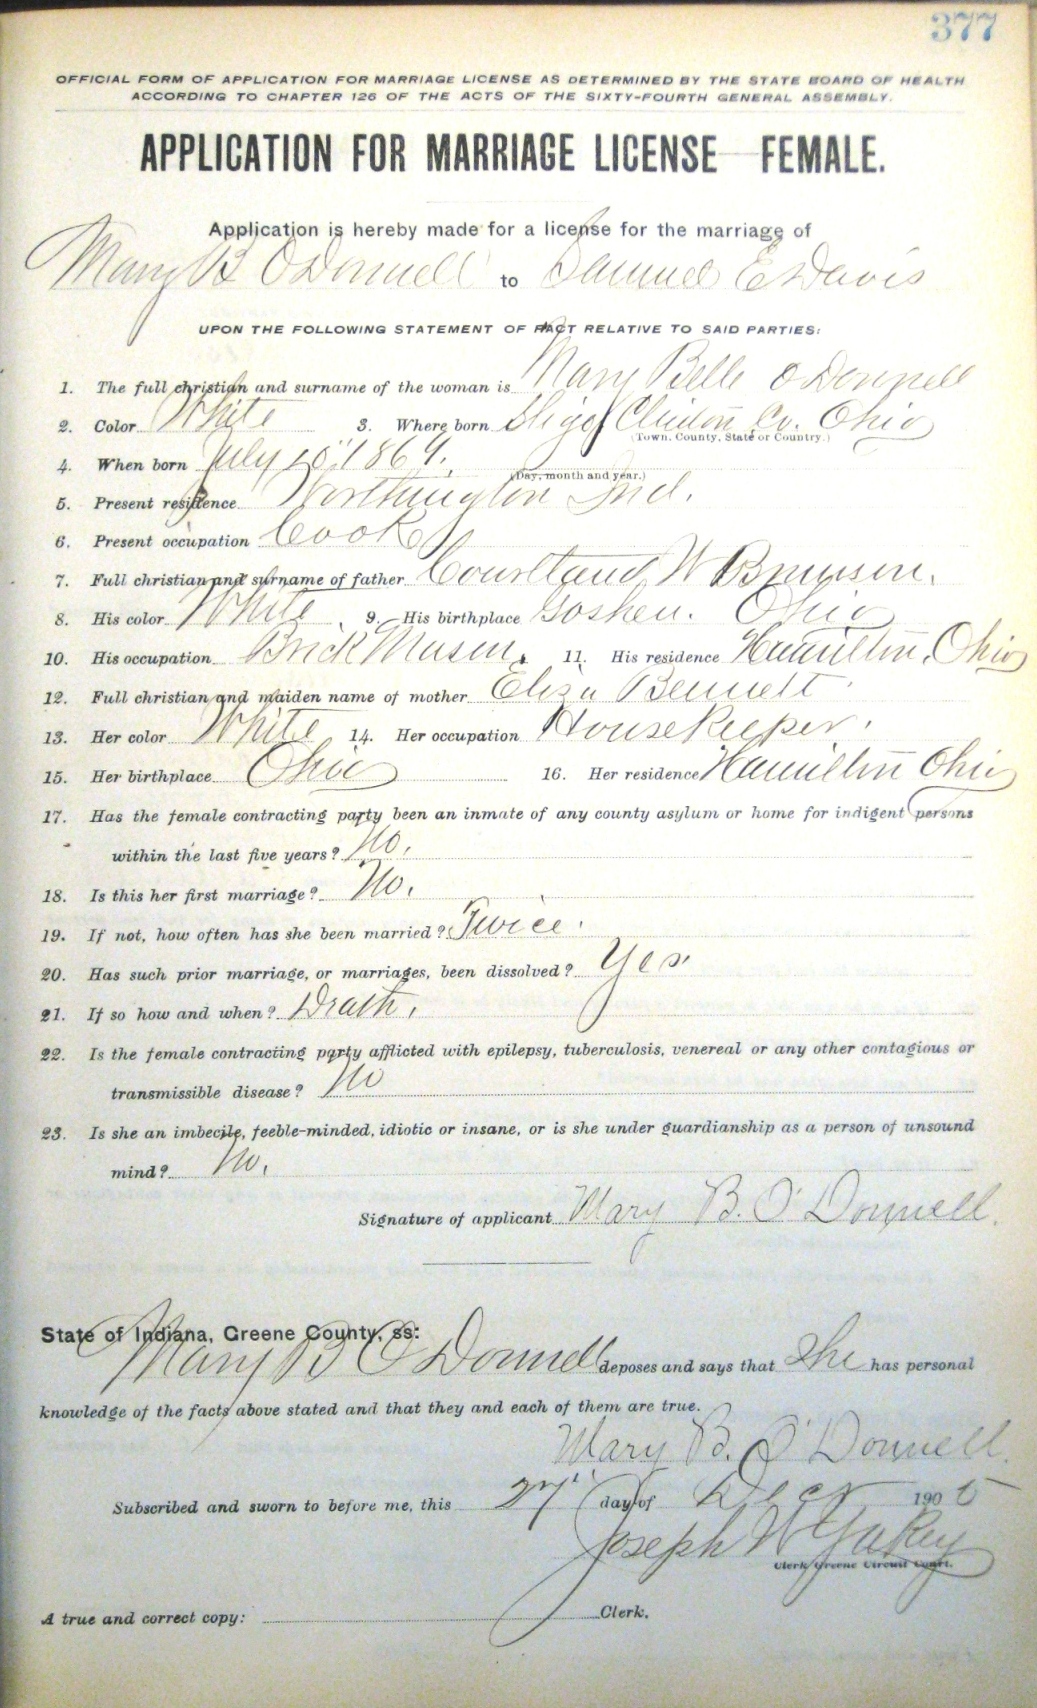 377
OFFICIAL FORM OF APPLICATION FOR MARRIAGE LICENSE AS DETERMINED BY THE STATE BOARD OF HEALTH
ACCORDING TO CHAPTER 126 OF THE ACTS OF THE SIXTY-FOURTH GENERAL ASSEMBLY.
APPLICATION FOR MARRIAGE LICENSE FEMALE.
Application is hereby made for a license for the marriage of
Mary B O'Donnell to Samuel E Davis
UPON THE FOLLOWING STATEMENT OF FACT RELATIVE TO SAID PARTIES:
1. The full christian and surname of the woman is Mary Belle O Donnell
2. Color White 3. Where born Clinton Co. Ohio
(Town, County, State or Country.)
4. When born July 1864.
(Day, month and year.)
5. Present residence Worthington Ind.
6. Present occupation Cook
7. Full christian and surname of father Courtland W
8. His color White 9. His birthplace Goshen. Ohio
10. His occupation Brick Mason. 11. His residence Hamilton, Ohio
12. Full christian and maiden name of mother Eliza Bennett
13. Her color White 14. Her occupation Housekeeper.
15. Her birthplace Ohio 16. Her residence Hamilton Ohio
17. Has the female contracting party been an inmate of any county asylum or home for indigent persons
within the last five years? No.
18. Is this her first marriage? No.
19. If not, how often has she been married? Twice.
20. Has such prior marriage, or marriages, been dissolved? Yes
21. If so how and when? Death.
22. Is the female contracting party afflicted with epilepsy, tuberculosis, venereal or any other contagious or
transmissible disease? No
23. Is she an imbecile, feeble-minded, idiotic or insane, or is she under guardianship as a person of unsound
mind? No.
Signature of applicant Mary B. O'Donnell.
State of Indiana, Greene County, ss:
Mary B O Donnell deposes and says that She has personal
knowledge of the facts above stated and that they and each of them are true.
Mary B. O'Donnell.
Subscribed and sworn to before me, this 27" day of Decr 1905
Joseph W Yakey
Clerk Greene Circuit Court.
A true and correct copy: Clerk.